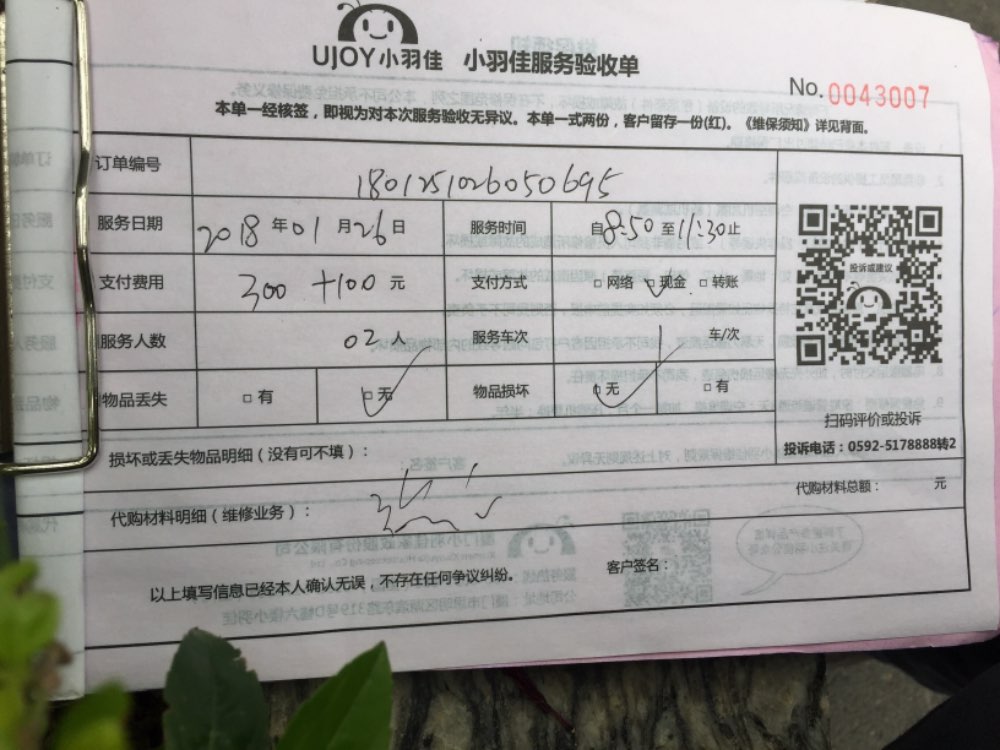 UJOY小羽佳 小羽佳服务验收单
No. 0043007
本单一经核签，即视为对本次服务验收无异议。本单一式两份，客户留存一份(红)。《维保须知》详见背面。
订单编号 1801251026050695
服务日期 2018年01月26日 服务时间 自8:50至11:30止
支付费用 300 +100 元 支付方式 □网络 □现金 □转账
服务人数 02人 服务车次 1 车/次
物品丢失 □有 □无 物品损坏 □无 □有
投诉或建议
扫码评价或投诉
投诉电话：0592-5178888转2
损坏或丢失物品明细（没有可不填）：
代购材料明细（维修业务）： 代购材料总额： 元
以上填写信息已经本人确认无误，不存在任何争议纠纷。 客户签名：